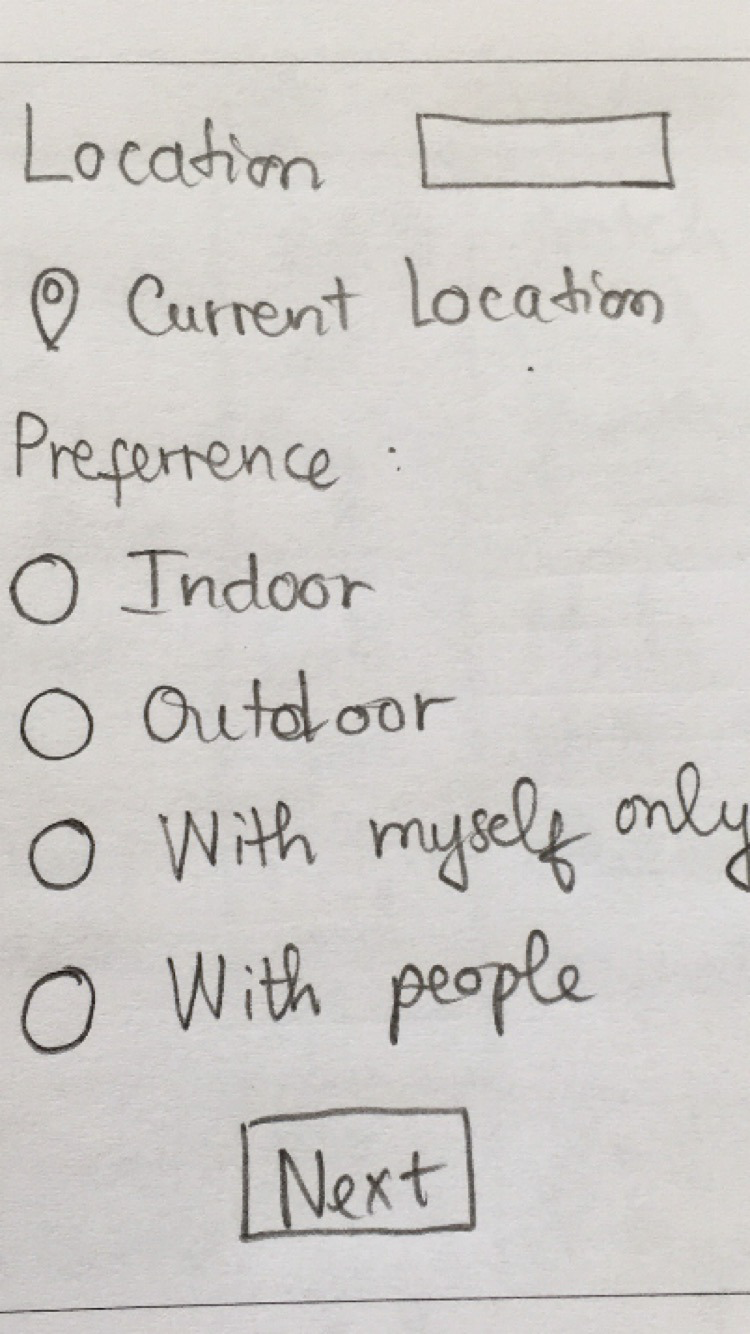 Location
Current Location
Preferrence :
Indoor
Outdoor
With myself only
With people
Next